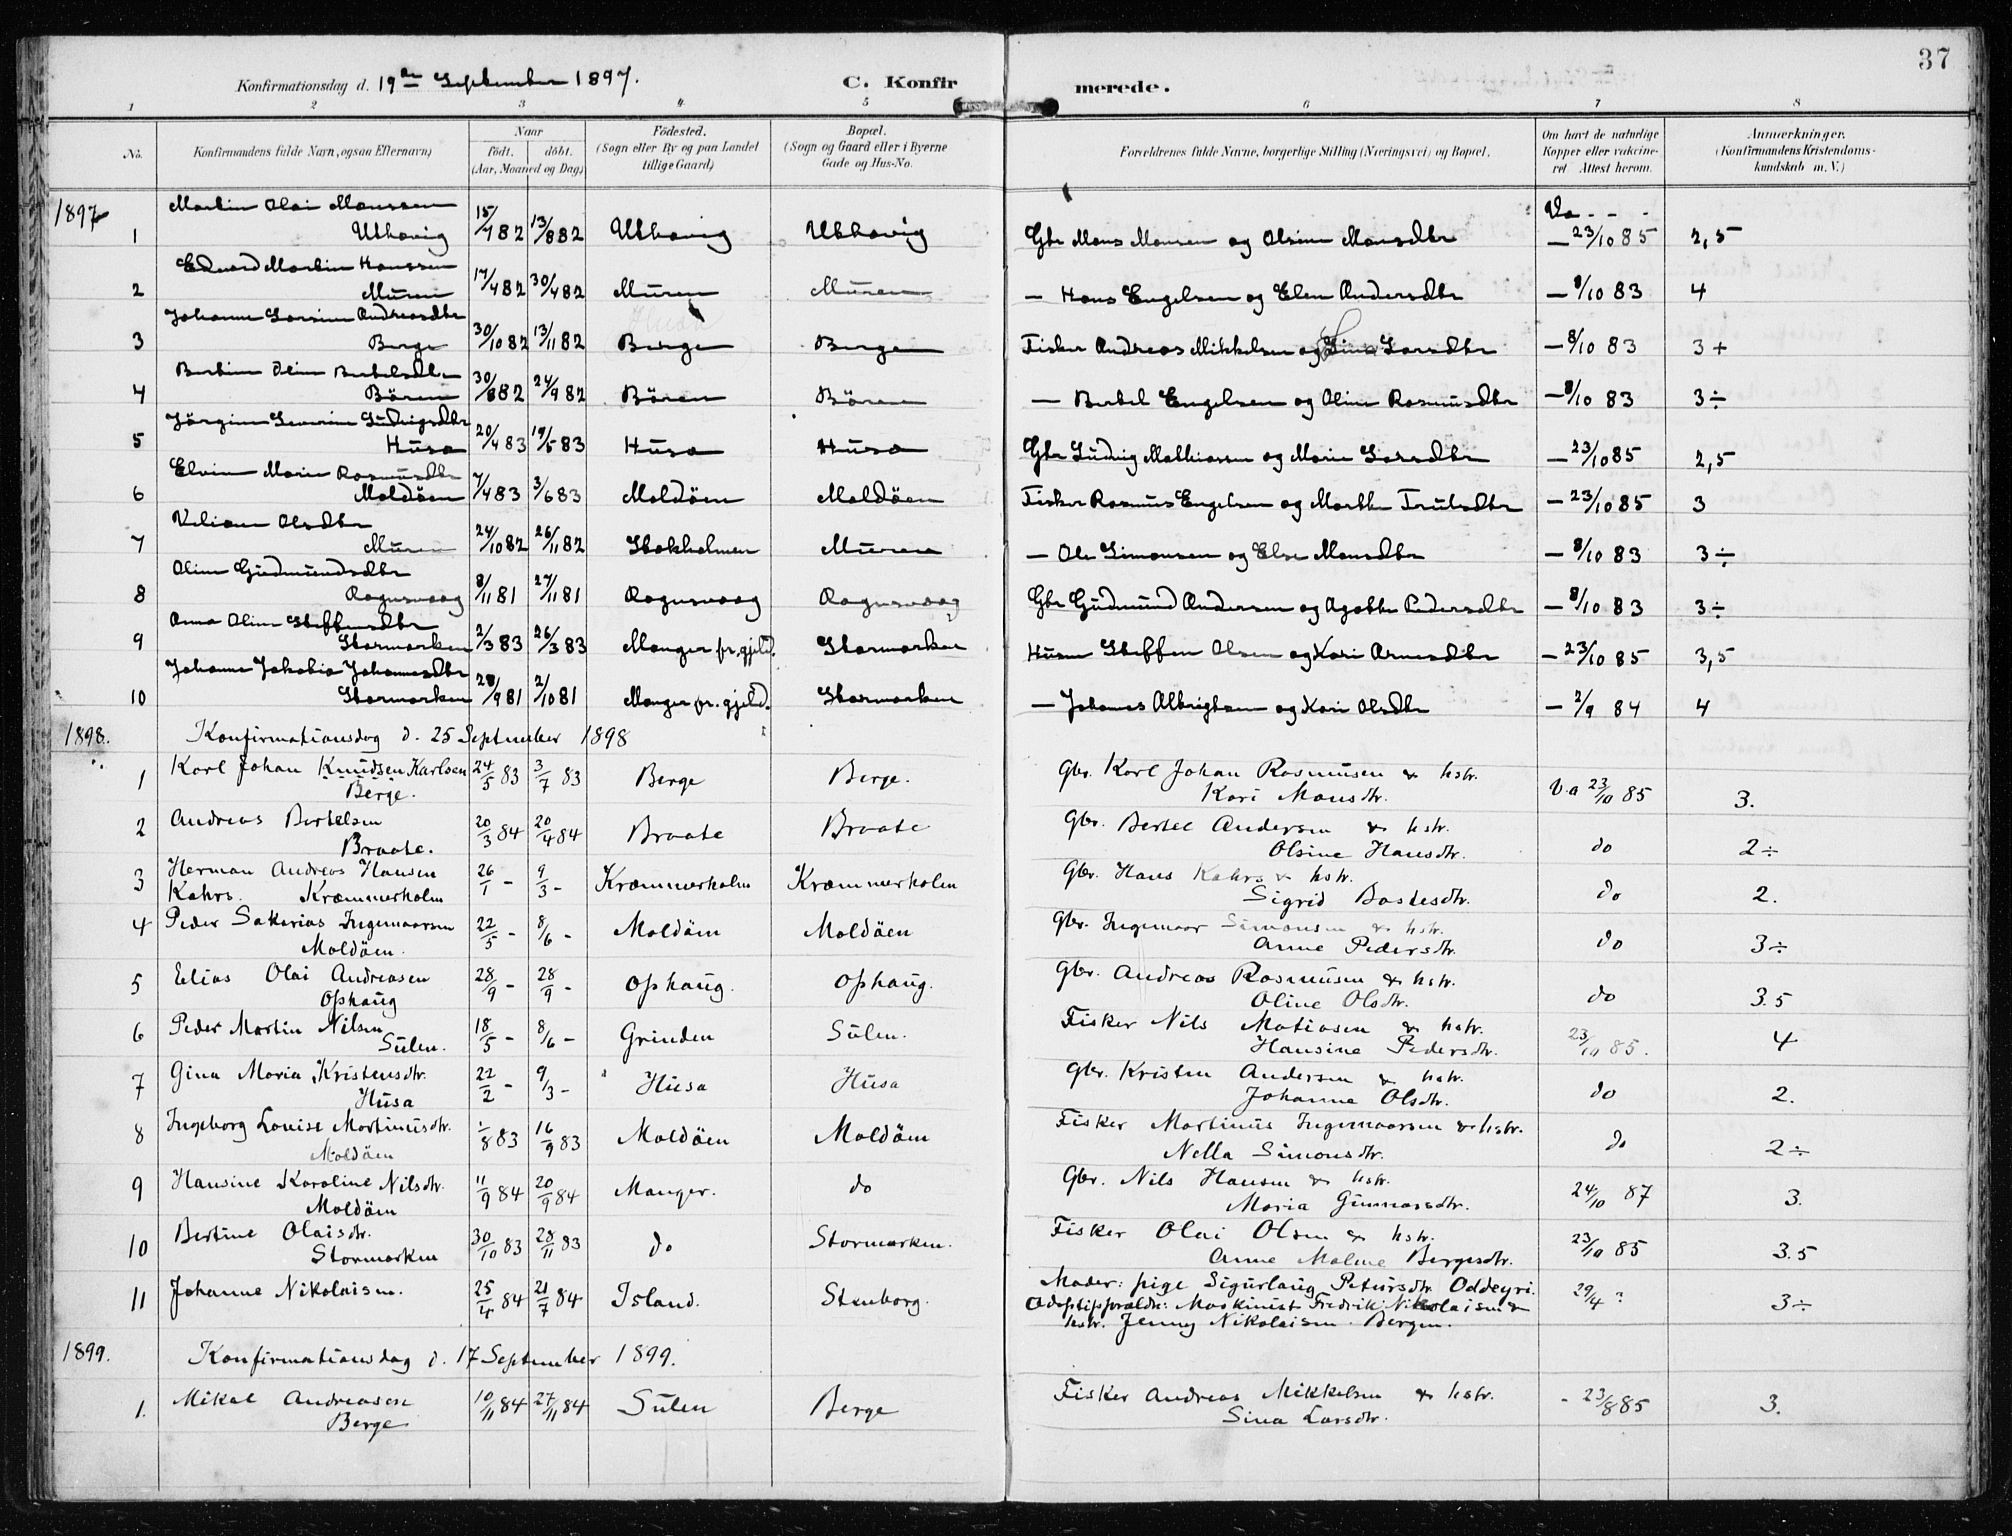 37
Konfirmationsdag d. 19de September 1897. C. Konfirmerede.
1 2 3 4 5 6 7 8
No. Konfirmandens fulde Navn, ogsaa Efternavn) Naar födt. döbt. (Aar, Maaned og Dag) Födested. (Sogn eller By og paa Landet tillige Gaard) Bopæl. (Sogn og Gaard eller i Byerne Gade og Hus-No. Forældrenes fulde Navne, borgerlige Stilling (Næringsvei) og Bopæl. Om havt de naturlige Kopper eller vakcineret Attest herom. Anmærkninger. (Konfirmandens Kristendomskundskab m. V.)
1897
1 Martin Olai Monssen Utkavig 15/7 82 13/8 82 Utkavig Utkavig Gbr Mons Monsen og Olsine Monsdtr Va - 23/10 85 2,5
2 Edvard Martin Hanssen Muren 17/4 82 30/4 82 Muren Muren — Hans Engelsen og Elen Andersdtr — 8/10 83 4
3 Johanne Larsine Andreasdtr Berge 30/10 82 13/11 82 Berge Berge Fisker Andreas Mikkelsen og Sina Larsdtr — 8/10 83 3 +
4 Bertine Oline Bertelsdtr Bören 30/8 82 24/9 82 Bören Bören — Bertel Engelsen og Oline Rasmusdtr — 8/10 83 3÷
5 Jörgine Severine Ludvigsdtr Husa 20/4 83 19/5 83 Husa Husa Gbr Ludvig Mathiassen og Marie Larsdtr — 23/10 85 2,5
6 Elvine Marie Rasmusdtr Moldöen 7/4 83 3/6 83 Moldöen Moldöen Fisker Rasmus Engelsen og Marthe Trulsdtr — 23/10 85 3
7 Olsdtr Muren 24/10 82 26/11 82 Stokholmen Muren — Ole Simonsen og Else Monsdtr — 8/10 83 3÷
8 Oline Gudmundsdtr Ragnsvaag 8/11 81 27/11 81 Ragnsvaag Ragnsvaag Gbr Gudmund Andersen og Agathe Pedersdtr — 8/10 83 3÷
9 Anna Oline Steffensdtr Stormarken 2/3 83 26/3 83 Manger pr.gjeld. Stormarken Husm Steffen Olsen og Kari Arnesdtr — 23/10 85 3,5
10 Johanne Jakobia Johannesdtr Stormarken 28/9 81 2/10 81 Manger pr. gjeld. Stormarken — Johannes Albrigtsen og Kari Olsdtr — 2/9 84 4
1898. Konfirmationsdag d. 25 September 1898
1 Karl Johan Knudsen Karlsen Berge. 24/5 83 3/7 83 Berge Berge. Gbr. Karl Johan Rasmusen & hstr. Kari Monsdtr. Va 23/10 85 3.
2 Andreas Bertelsen Braate. 20/3 84 20/4 84 Braate Braate Gbr. Bertel Andersen & hstr. Olsine Hansdtr. do 2÷
3 Herman Andreas Hansen Kahrs. Kræmmerholm 26/1 - 9/3 - Kræmmerholm Kræmmerholm Gbr. Hans Kahrs & hstr. Sigrid Bastesdtr. do 2.
4 Peder Sakarias Ingemaarsen Moldöen. 22/5 - 8/6 - Moldöen Moldöen Gbr. Ingemaar Simonsen & hstr. Anne Pedersdtr. do 3÷
5 Elias Olai Andreasen Ophaug 28/9 - 28/9 - Ophaug. Ophaug. Gbr. Andreas Rasmusen & hstr. Oline Olsdtr. do 3.5
6 Peder Martin Nilsen Sulen. 18/5 - 8/6 - Grinden Sulen. Fisker Nils Matiasen & hstr. Hansine Pedersdtr. 23/10 85. 4
7 Gina Maria Kristensdtr. Husa 22/2 - 9/3 - Husa Husa Gbr. Kristen Andersen & hstr. Johanne Olsdtr. do 2.
8 Ingeborg Louise Martinusdtr. Moldöen 1/8 83 16/9 83 Moldöen Moldöen Fisker Martinus Ingemaarsen & hstr. Nella Simonsdtr. do 2÷
9 Hansine Karoline Nilsdtr. Moldöen 11/9 84 20/9 84 Manger. do Gbr. Nils Hansen & hstr. Maria Gunnarsdtr. 24/10 87 3.
10 Bertine Olaisdtr. Stormarken 30/10 83 28/11 83 do Stormarken. Fisker Olai Olsen & hstr. Anne Malene Bergesdtr. 23/10 85 3.5
11 Johanne Nikolaisen. 25/4 84 21/7 84 Island. Stenborg. Moder: pige Sigurlaug Petursdtr. Oddeyri. Adoptivforældre: Maskinist Fredrik Nikolaisen & hstr. Jenny Nikolaisen. Bergen. 29/4 ? 3÷
1899. Konfirmationsdag d. 17 September 1899.
1. Mikal Andreasen Berge 10/11 84 27/11 84 Sulen Berge Fisker Andreas Mikkelsen & hstr. Sina Larsdtr. - 23/8 85 3.